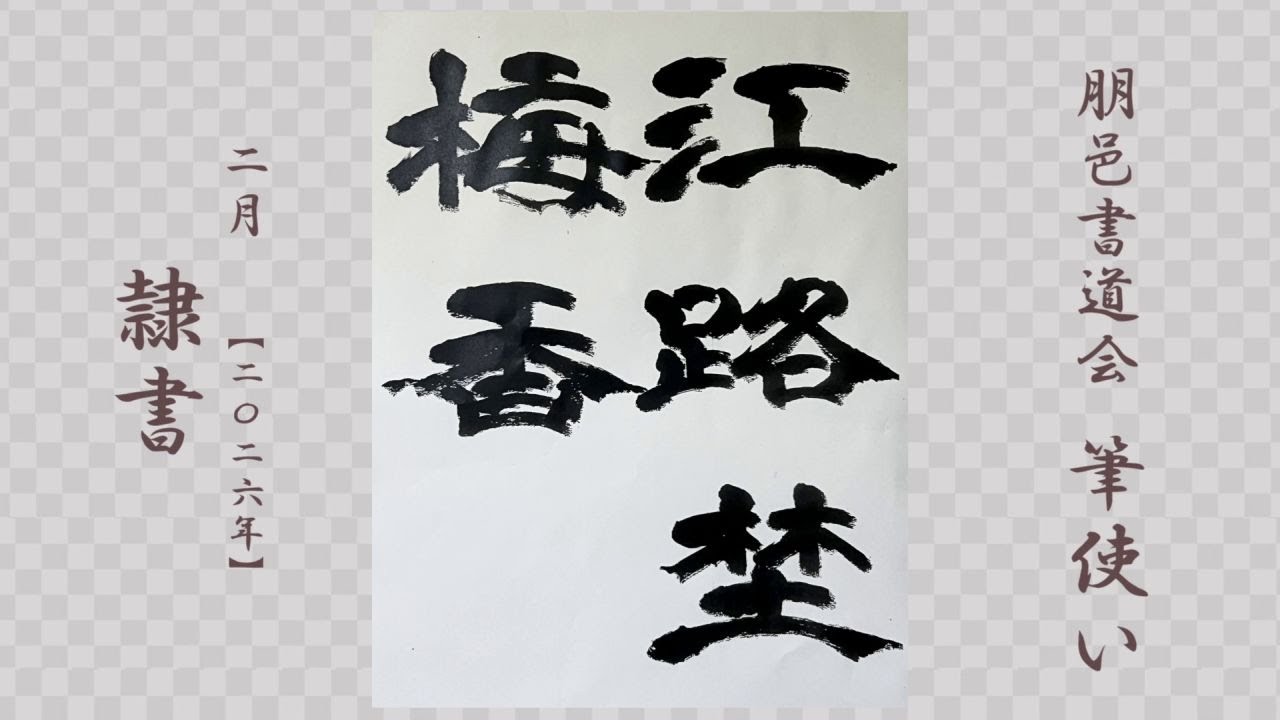 朋邑書道会 筆使い
江路埜
梅香
二月 【二〇二六年】
隷書